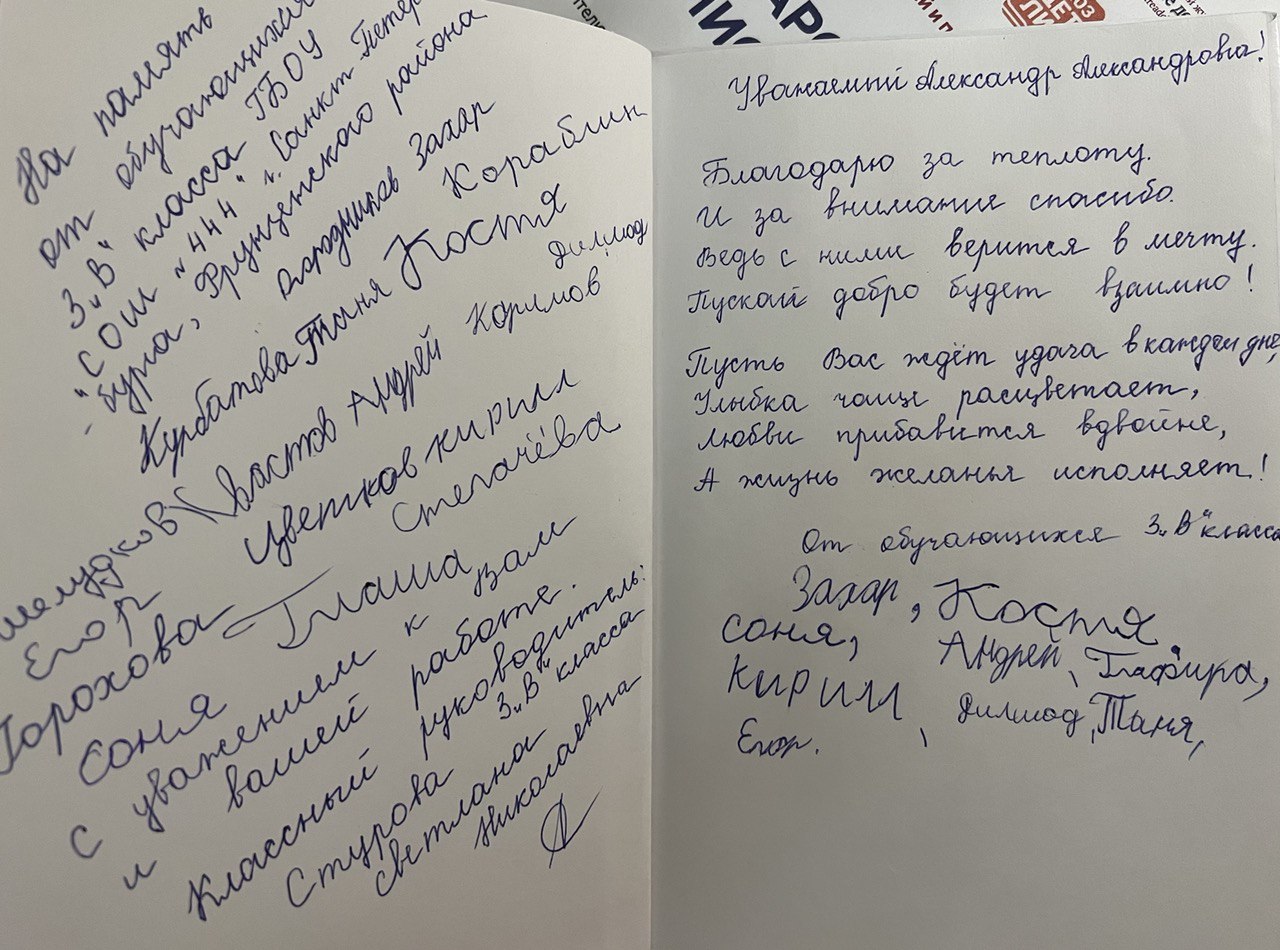 На память
от обучающихся
3„В" класса ГБОУ
"СОШ №444" г. Санкт-Петер
-бурга, Фрунзенского района
Захар
Кораблин
Курбатова Таня Костя
Хвастов Андрей Каримов Дилшод
Цветков Кирилл
Егор
Горохова Глаша Стегачёва
Соня
С уважением к вам
и вашей работе.
Классный руководитель:
3„В" класса
Стурова
Светлана
Николаевна
Уважаемый Александр Александрович!
Благодарю за теплоту.
И за внимание спасибо.
Ведь с ними верится в мечту.
Пускай добро будет взаимно!
Пусть Вас ждёт удача в каждом дне,
Улыбка чаще расцветает,
Любви прибавится вдвойне,
А жизнь желанья исполняет!
От обучающихся 3„В" класса
Захар, Костя,
Соня, Андрей, Глафира,
Кирилл, Дилшод, Таня,
Егор.